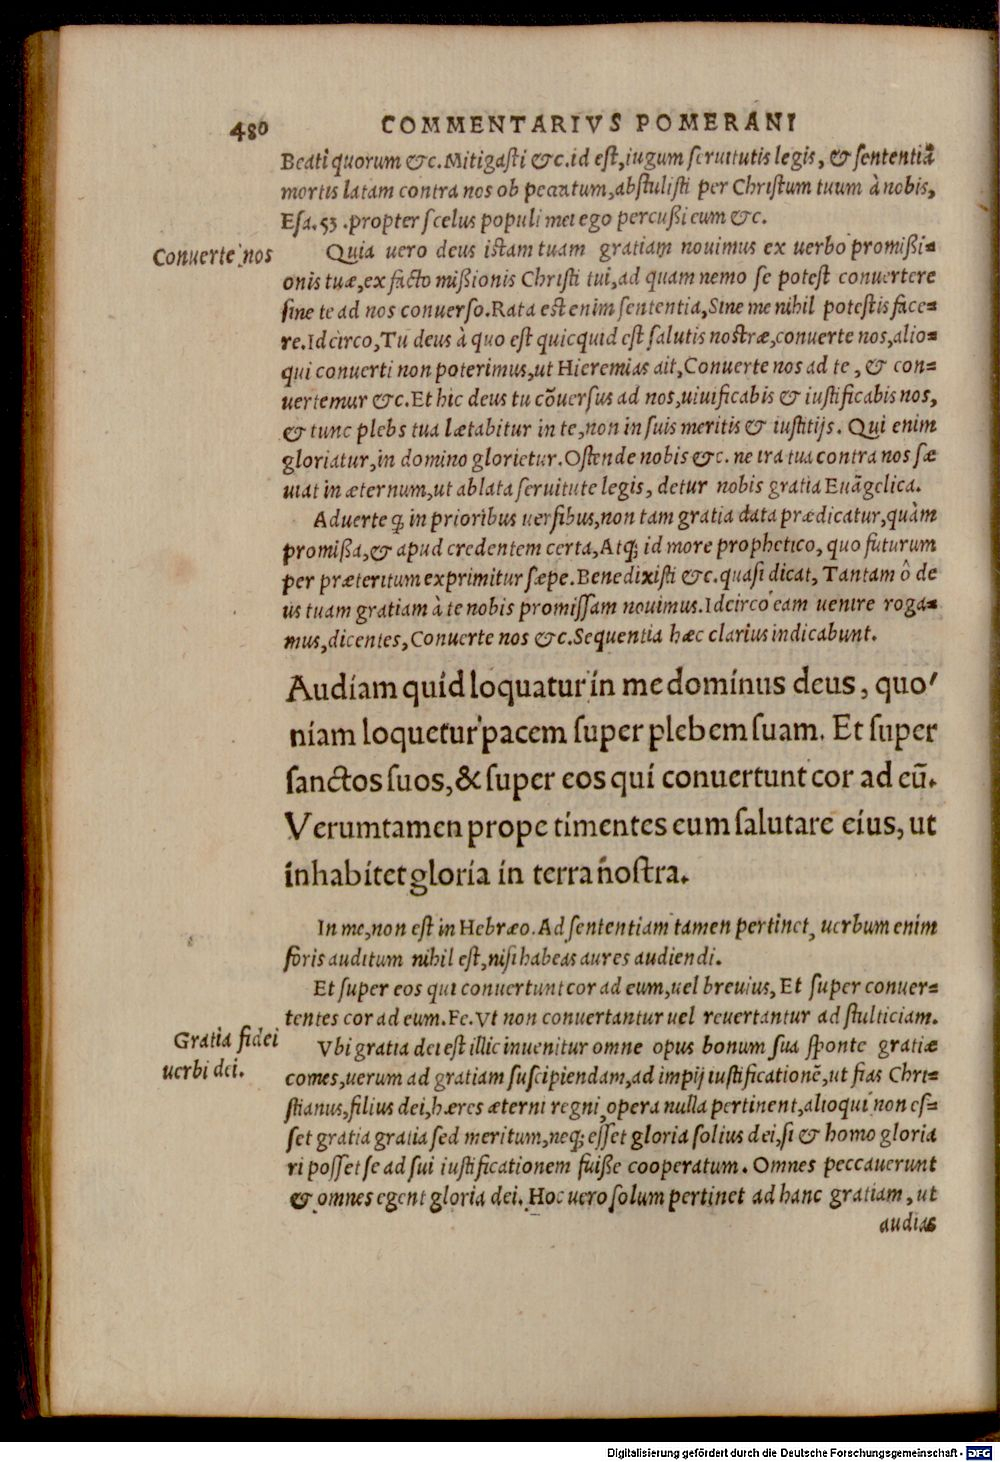 480 COMMENTARIVS POMERANI
Beati quorum &c. Mitigasti &c. id est, iugum seruitutis legis, & sententiã
mortis latam contra nos ob peccatum, abstulisti per Christum tuum à nobis,
Esa. 53. propter scelus populi mei ego percußi eum &c.
Conuerte nos
Quia uero deus istam tuam gratiam nouimus ex uerbo promißi=
onis tuæ, ex facto mißionis Christi tui, ad quam nemo se potest conuertere
sine te ad nos conuerso. Rata est enim sententia, Sine me nihil potestis face=
re. Idcirco, Tu deus à quo est quicquid est salutis nostræ, conuerte nos, alio=
qui conuerti non poterimus, ut Hieremias ait, Conuerte nos ad te, & con=
uertemur &c. Et hic deus tu cõuersus ad nos, uiuificabis & iustificabis nos,
& tunc plebs tua lætabitur in te, non in suis meritis & iustitijs. Qui enim
gloriatur, in domino glorietur. Ostende nobis &c. ne ira tua contra nos sæ
uiat in æternum, ut ablata seruitute legis, detur nobis gratia Euãgelica.
Aduerte q; in prioribus uersibus, non tam gratia data prædicatur, quàm
promißa, & apud credentem certa, Atq; id more prophetico, quo futurum
per præteritum exprimitur sæpe. Benedixisti &c. quasi dicat, Tantam ô de
us tuam gratiam à te nobis promissam nouimus. Idcirco eam uenire roga=
mus, dicentes, Conuerte nos &c. Sequentia hæc clarius indicabunt.
Audiam quid loquatur in me dominus deus, quo
niam loquetur pacem super plebem suam. Et super
sanctos suos, & super eos qui conuertunt cor ad eũ.
Verumtamen prope timentes eum salutare eius, ut
inhabitet gloria in terra nostra.
In me, non est in Hebræo. Ad sententiam tamen pertinet, uerbum enim
foris auditum nihil est, nisi habeas aures audiendi.
Et super eos qui conuertunt cor ad eum, uel breuius, Et super conuer=
tentes cor ad eum. Fe. Vt non conuertantur uel reuertantur ad stulticiam.
Gratia fidei
uerbi dei.
Vbi gratia dei est illic inuenitur omne opus bonum sua sponte gratiæ
comes, uerum ad gratiam suscipiendam, ad impij iustificationẽ, ut fias Chri=
stianus, filius dei, hæres æterni regni, opera nulla pertinent, alioqui non es=
set gratia gratia sed meritum, neq; esset gloria solius dei, si & homo gloria
ri posset se ad sui iustificationem fuiße cooperatum. Omnes peccauerunt
& omnes egent gloria dei. Hoc uero solum pertinet ad hanc gratiam, ut
audias
Digitalisierung gefördert durch die Deutsche Forschungsgemeinschaft - DFG